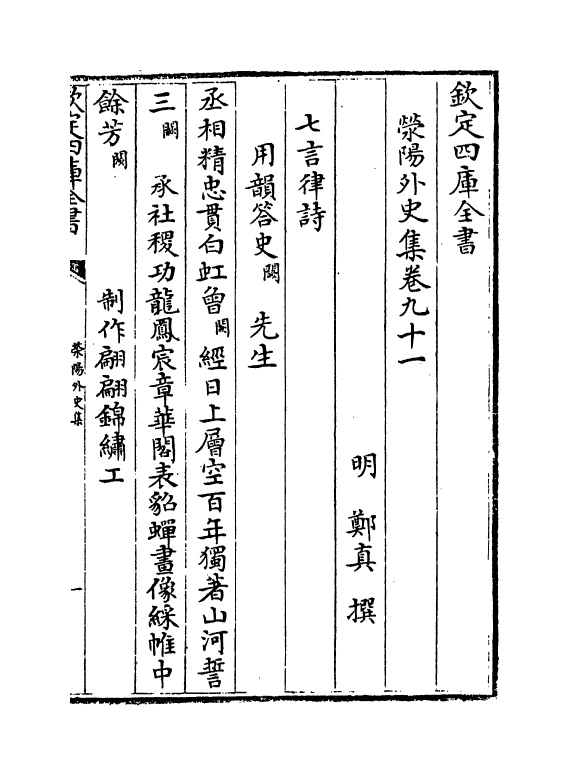 欽定四庫全書
滎陽外史集卷九十一
明 鄭真 撰
七言律詩
用韻答史闕 先生
丞相精忠貫白虹曾闕 經日上層空百年獨著山河誓
三闕 承社稷功龍鳳宸章華閣表貂蟬畫像綵帷中
餘芳闕 制作翩翩錦繡工
欽定四庫全書
滎陽外史集
一